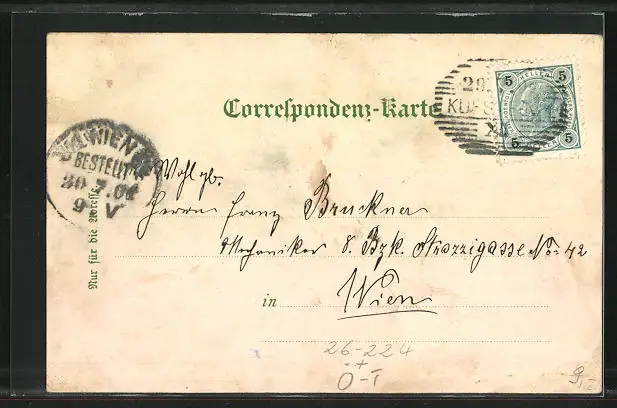 Correspondenz-Karte
29.
KUFS
X
5 HELLER 5
5 5
WIEN
BESTELLT
30.7.04
9 V
Nur für die Adresse
Wohlgb.
Herrn Franz Bruckner
Mechaniker 8. Bzk. Strozzigasse No 42
in Wien
26-224
+
O-T
9,-